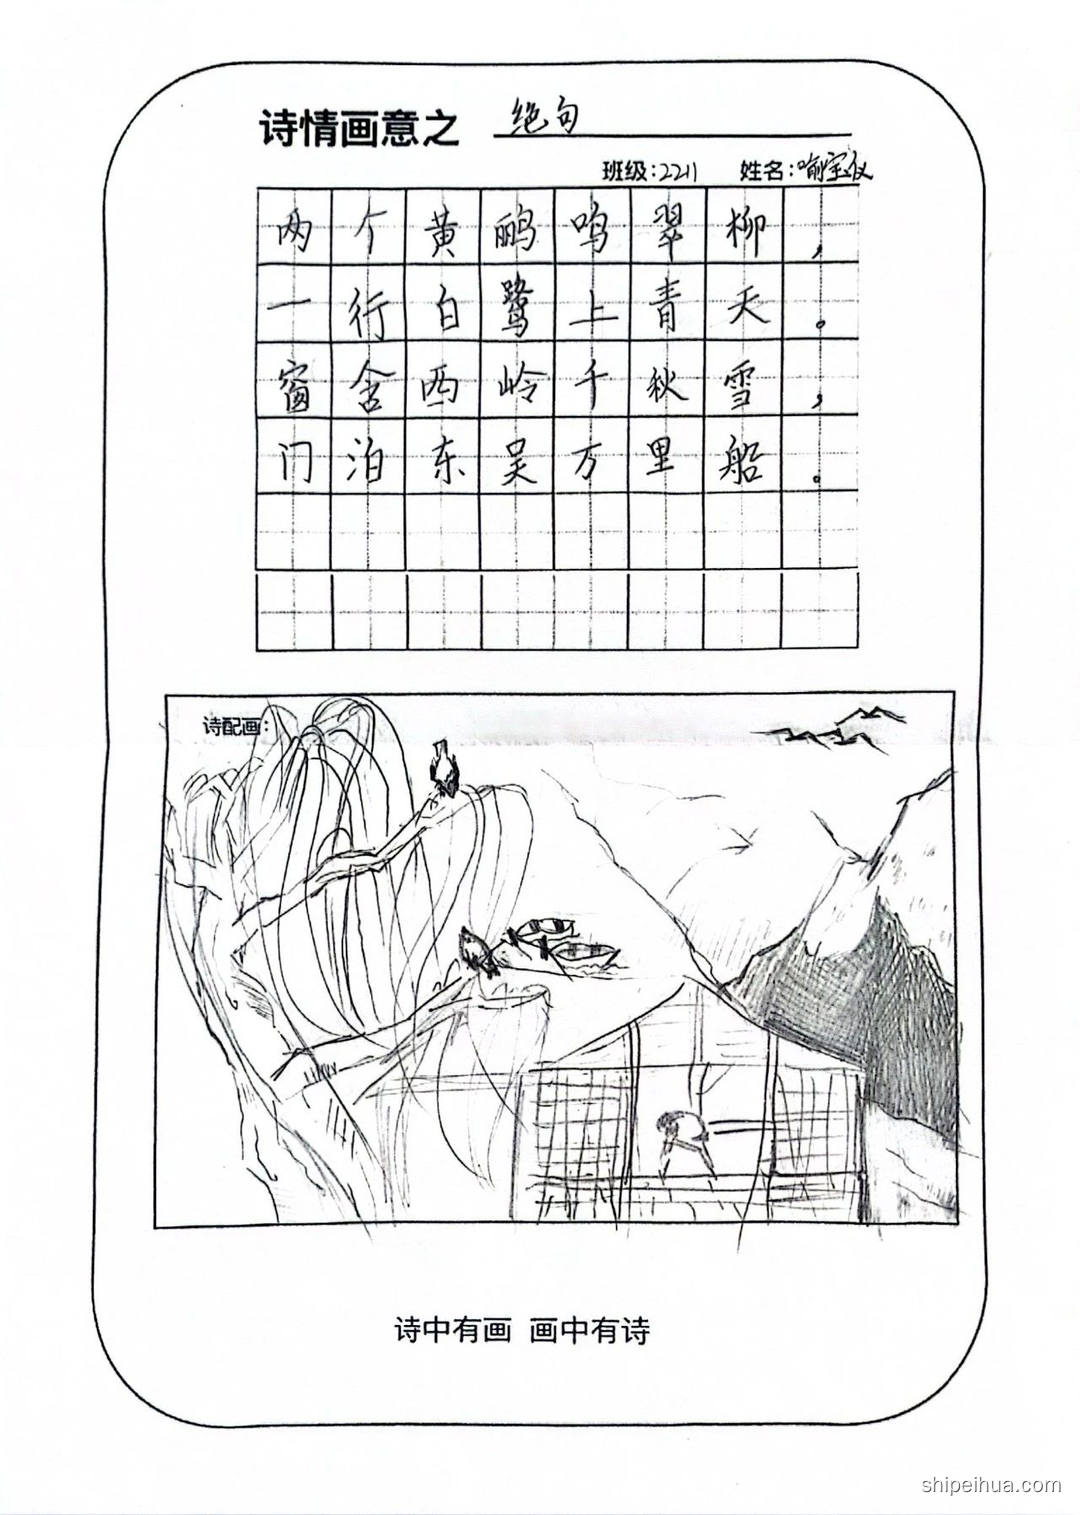 诗情画意之 绝句
班级:2211 姓名:喻宝仪
两个黄鹂鸣翠柳,
一行白鹭上青天。
窗含西岭千秋雪,
门泊东吴万里船。
诗配画:
诗中有画 画中有诗
shipeihua.com